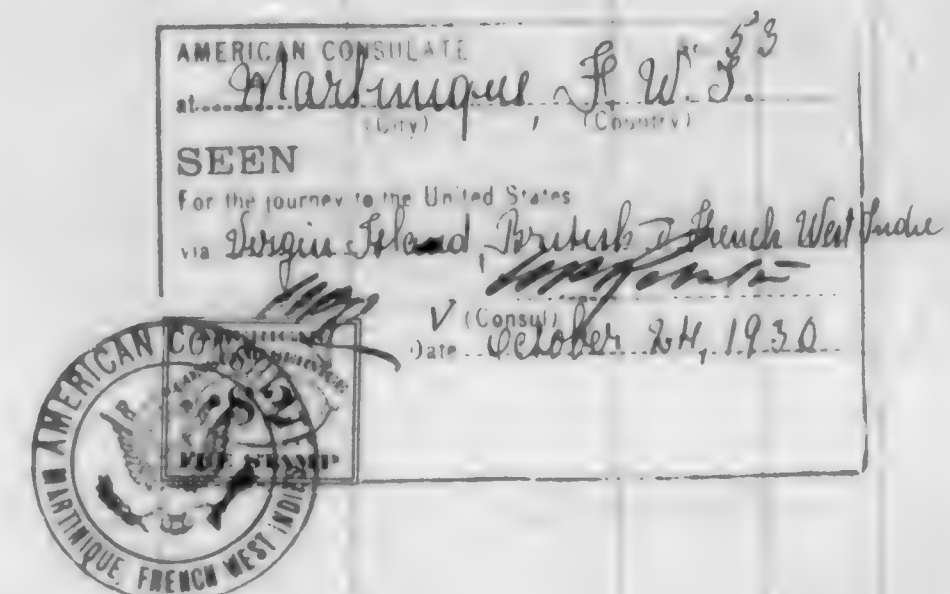 53
AMERICAN CONSULATE
at Martinique, F. W. I.
(City) (Country)
SEEN
For the journey to the United States
via Virgin Island, British & French West Indie
V (Consul)
Date October 24, 1930
AMERICAN CONSULATE
MARTINIQUE, FRENCH WEST INDIES
AMERICAN
SERVICE
FEE STAMP